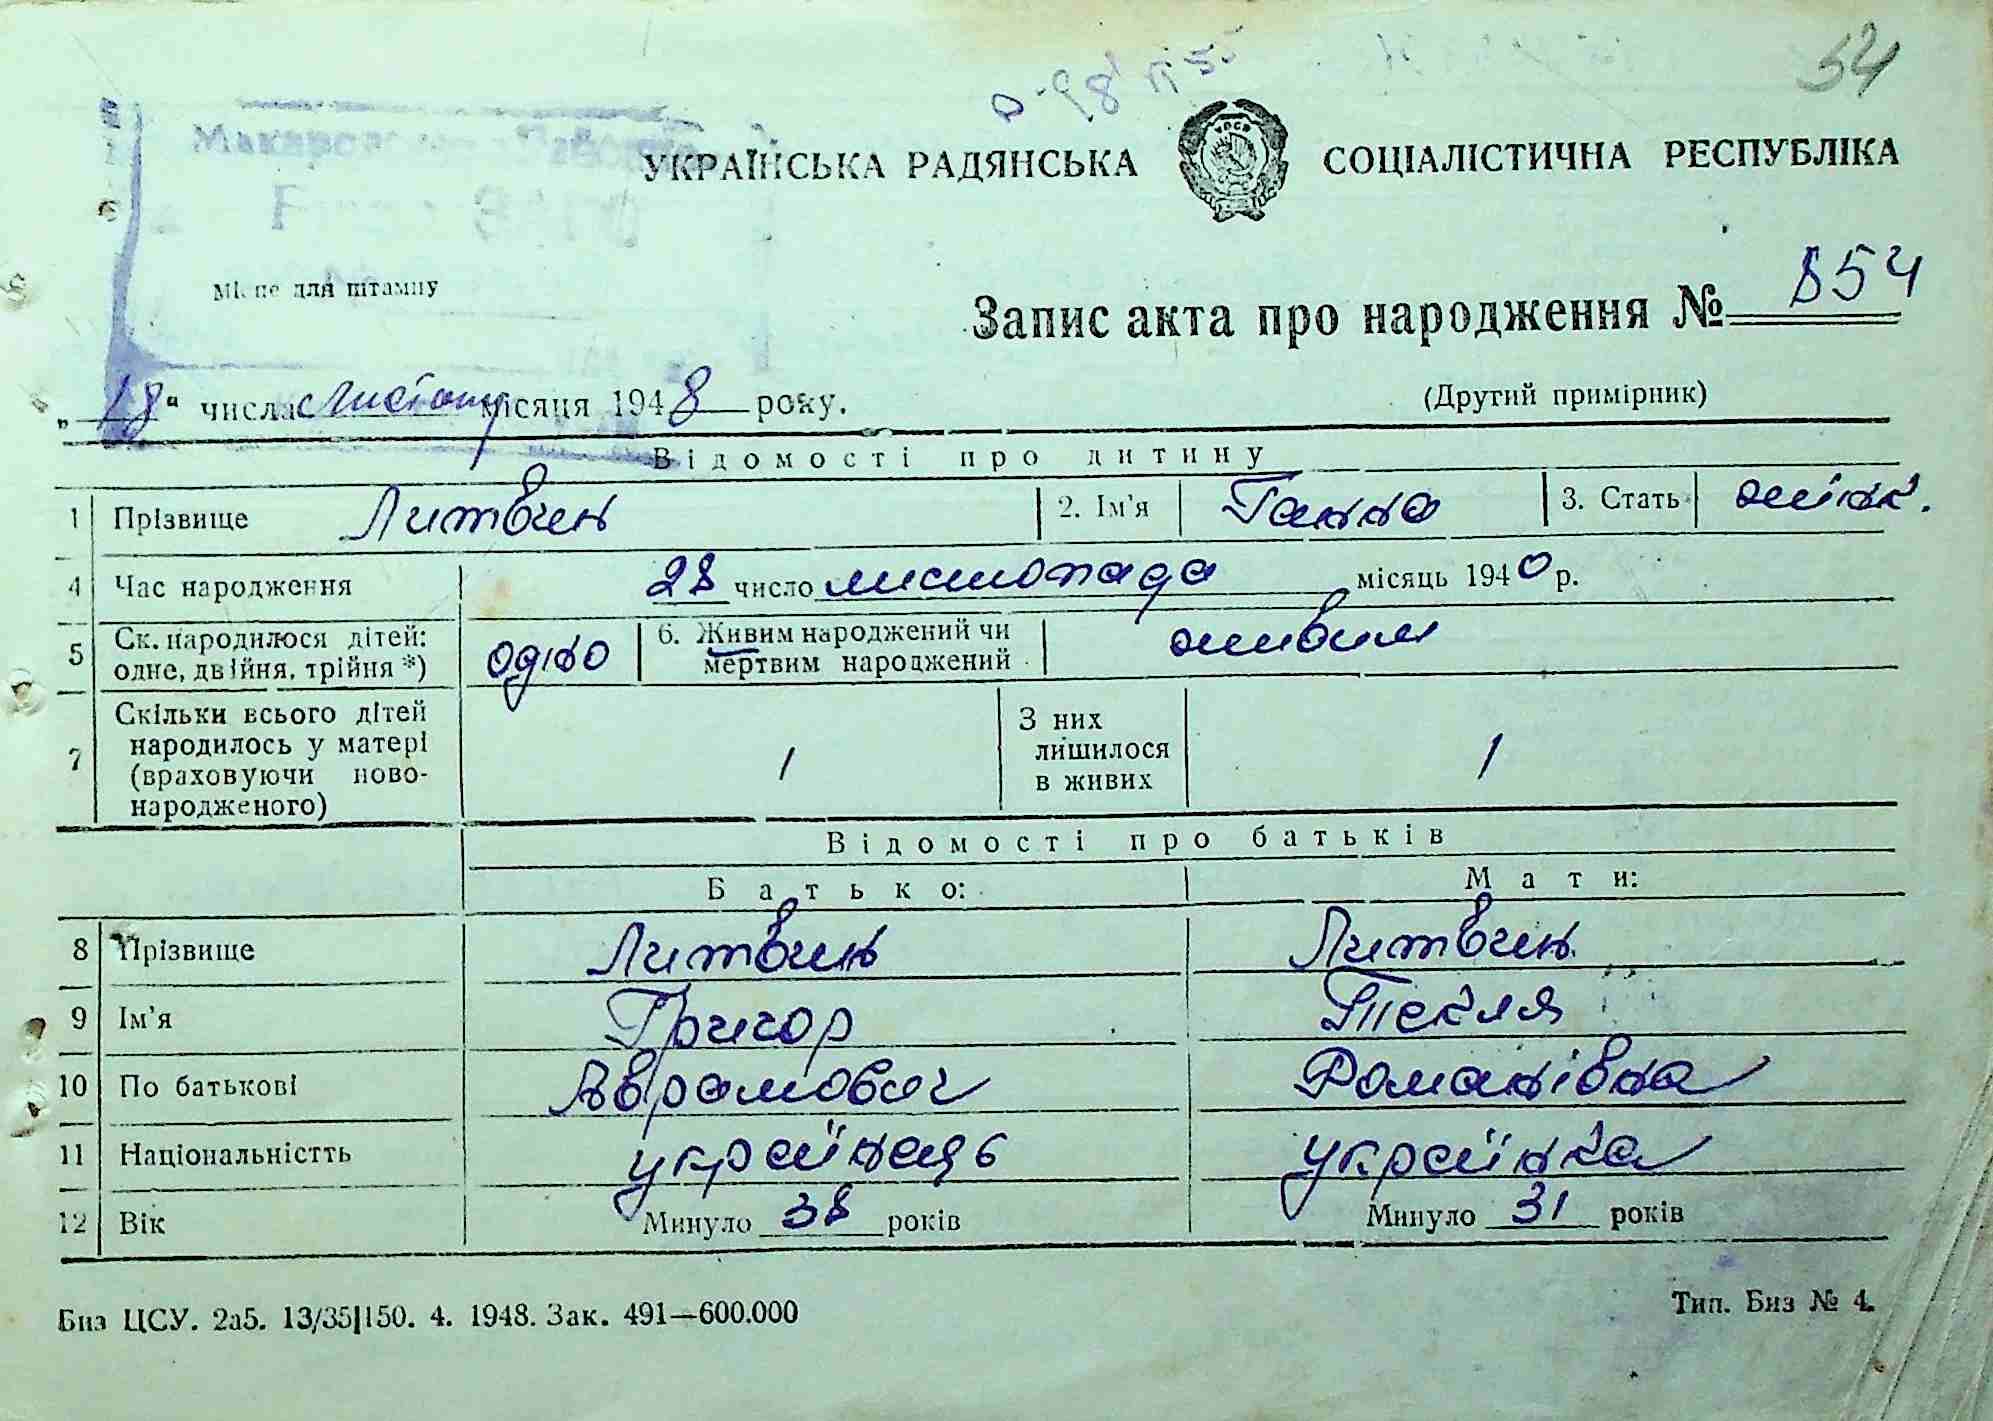 54
УКРАЇНСЬКА РАДЯНСЬКА СОЦІАЛІСТИЧНА РЕСПУБЛІКА
Місце для штампу
Запис акта про народження № 854
„18“ числа листопу місяця 1948 року.
(Другий примірник)
Відомості про дитину
1 Прізвище Литвин 2. Ім'я Ганна 3. Стать жінк.
4 Час народження 28 число листопада місяць 1940 р.
5 Ск. народилюся дітей: одне, двійня, трійня *) одно 6. Живим народжений чи мертвим народжений живим
7 Скільки всього дітей народилось у матері (враховуючи ново-народженого) 1 З них лишилося в живих 1
Відомості про батьків
Батько: Мати:
8 Прізвище Литвин Литвин
9 Ім'я Григор Текля
10 По батькові Аврамович Романівна
11 Національністть українець українка
12 Вік Минуло 38 років Минуло 31 років
Биз ЦСУ. 2а5. 13/35|150. 4. 1948. Зак. 491—600.000
Тип. Биз № 4.